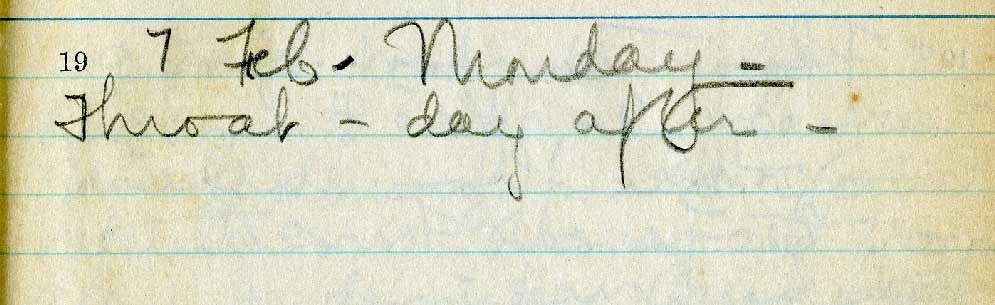 19 7 Feb. Monday -
Throat - day after -